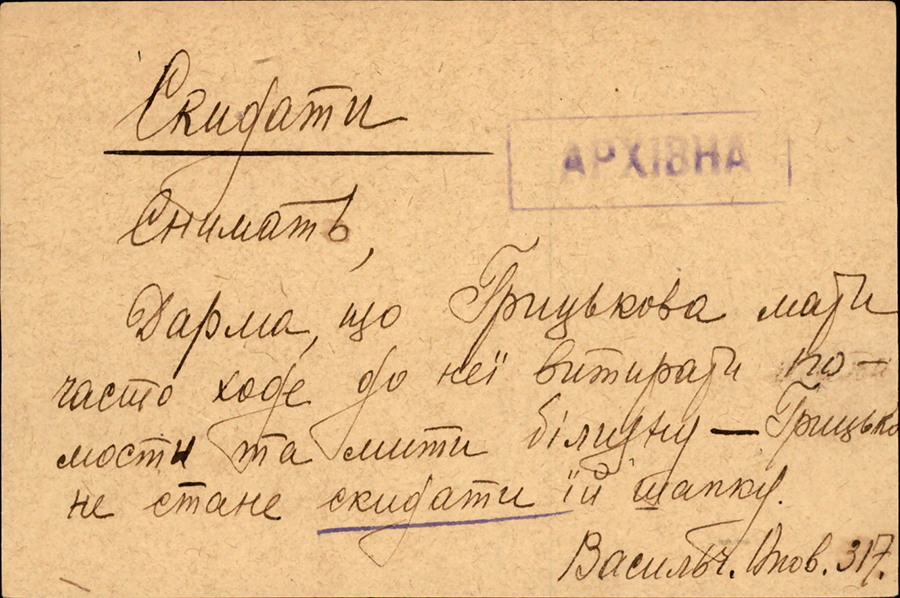 Скидати
АРХІВНА
Снимать,
Дарма, що Грицькова мати
часто ходе до неї витирати по-
мости та мити білизну — Грицько
не стане скидати їй шапку.
Васильч. Опов. 317.